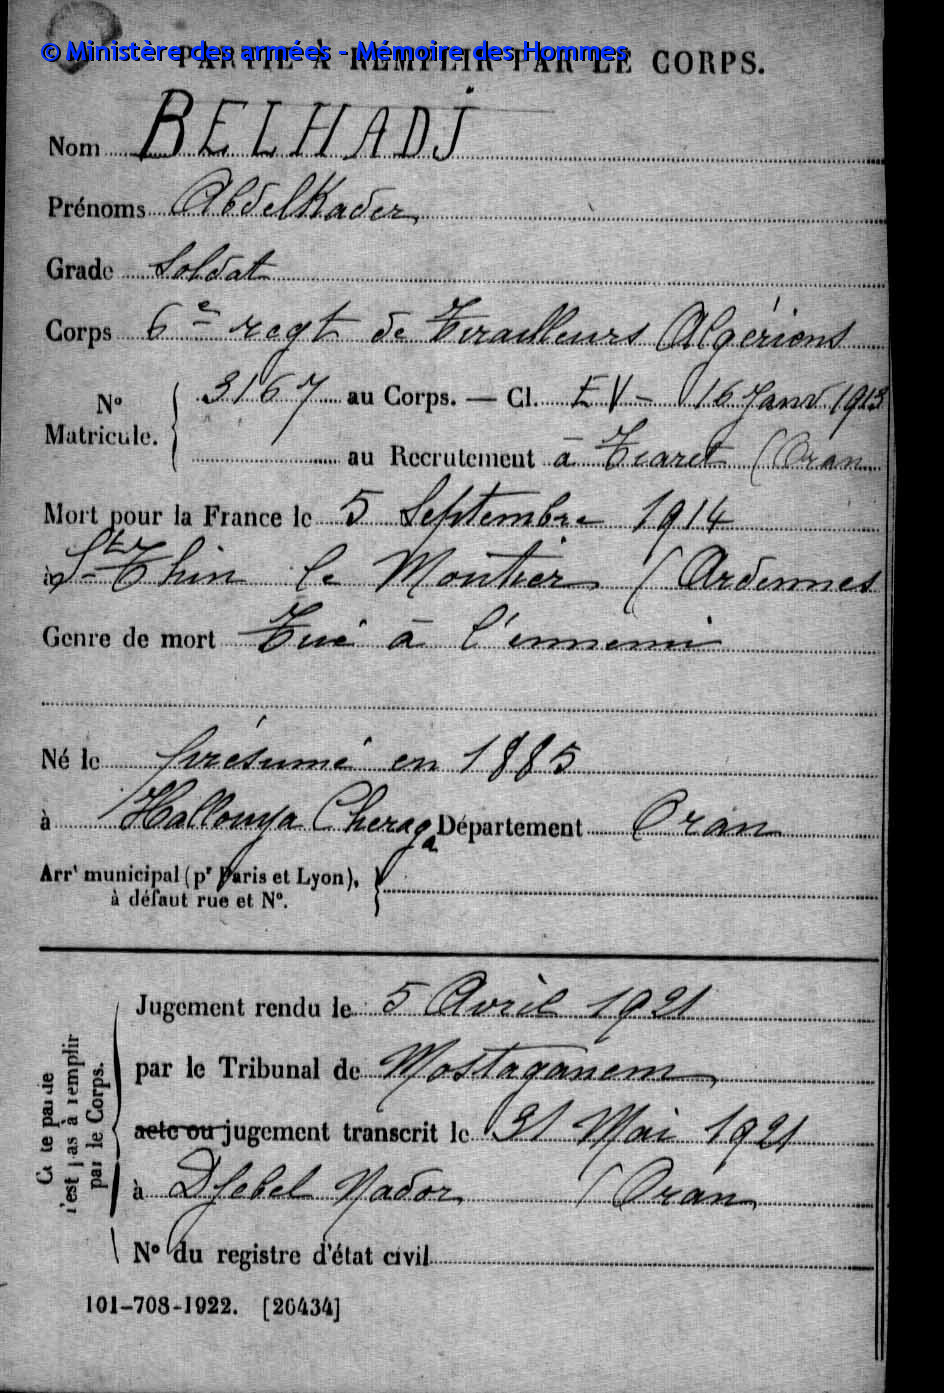 © Ministère des armées - Mémoire des Hommes
PARTIE À REMPLIR PAR LE CORPS.
Nom BELHADJ
Prénoms Abdelkader
Grade Soldat
Corps 6e regt de Tirailleurs Algériens
N° Matricule. 3167 au Corps. — Cl. EV - 16 Janv 1913
au Recrutement à Tiaret (Oran
Mort pour la France le 5 Septembre 1914
à St Thin le Moutier (Ardennes
Genre de mort Tué à l'ennemi
Né le présumé en 1885
à Hallouya Cheraga Département Oran
Arrt municipal (pr Paris et Lyon),
à défaut rue et N°.
Jugement rendu le 5 Avril 1921
par le Tribunal de Mostaganem
acte ou jugement transcrit le 31 Mai 1921
à Djebel Nador (Oran
N° du registre d'état civil
Cette partie
n'est pas à remplir
par le Corps.
101-708-1922. [26434]